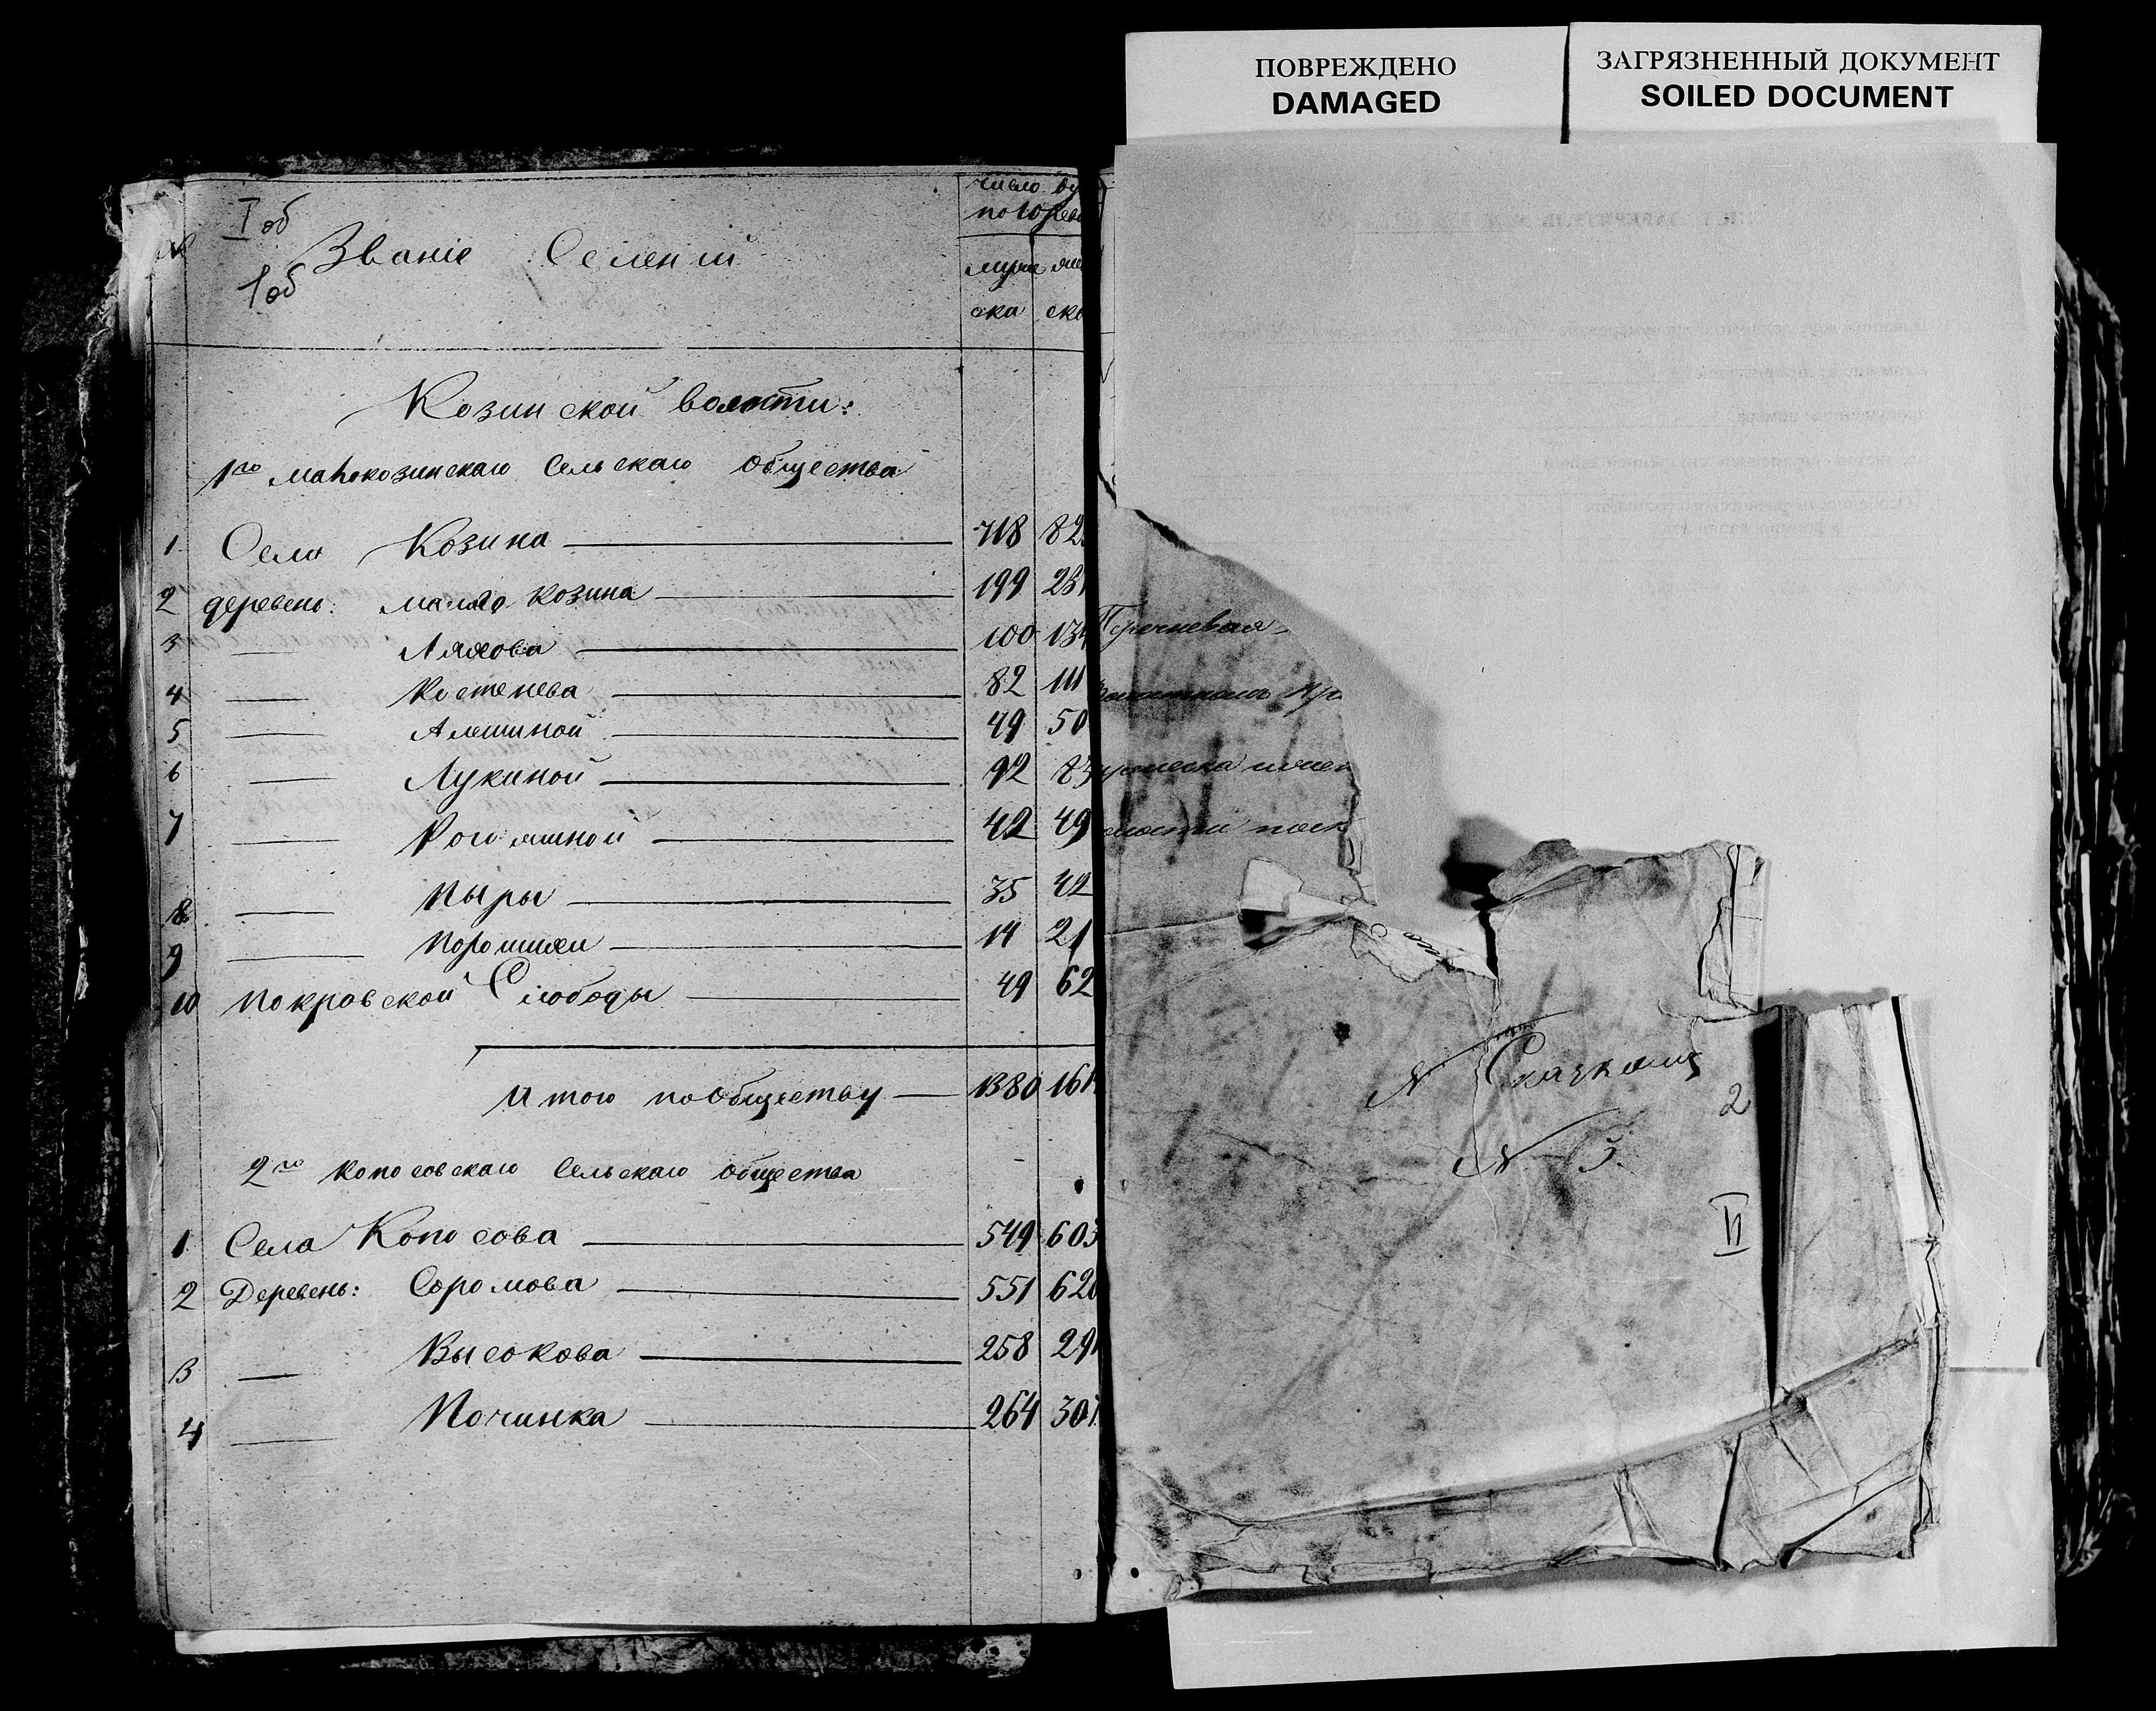 ПОВРЕЖДЕНО
DAMAGED
ЗАГРЯЗНЕННЫЙ ДОКУМЕНТ
SOILED DOCUMENT
I об
1 об
№
Званіе Селеній
число ду
по 10 реви
муже
ска
жен
ско
Козинской волости:
1го малокозинскаго Сельскаго Общества
1 Села Козина 718 82
2 деревень: малаго Козина 199 231
3 — Ляхова 100 134
4 — Костенева 82 111
5 — Алешиной 49 50
6 — Лукиной 92 83
7 — Рогожиной 42 49
8 — Пыры 35 42
9 — Порошихи 14 21
10 Покровской Слободы 49 62
Итого по Обществу 1380 161
2го Копосовскаго Сельскаго Общества
1 Села Копосова 549 603
2 Деревень: Соромова 551 620
3 — Высокова 258 291
4 — Починка 264 301
Перечневая
сказкамъ
2
№ 3.
II